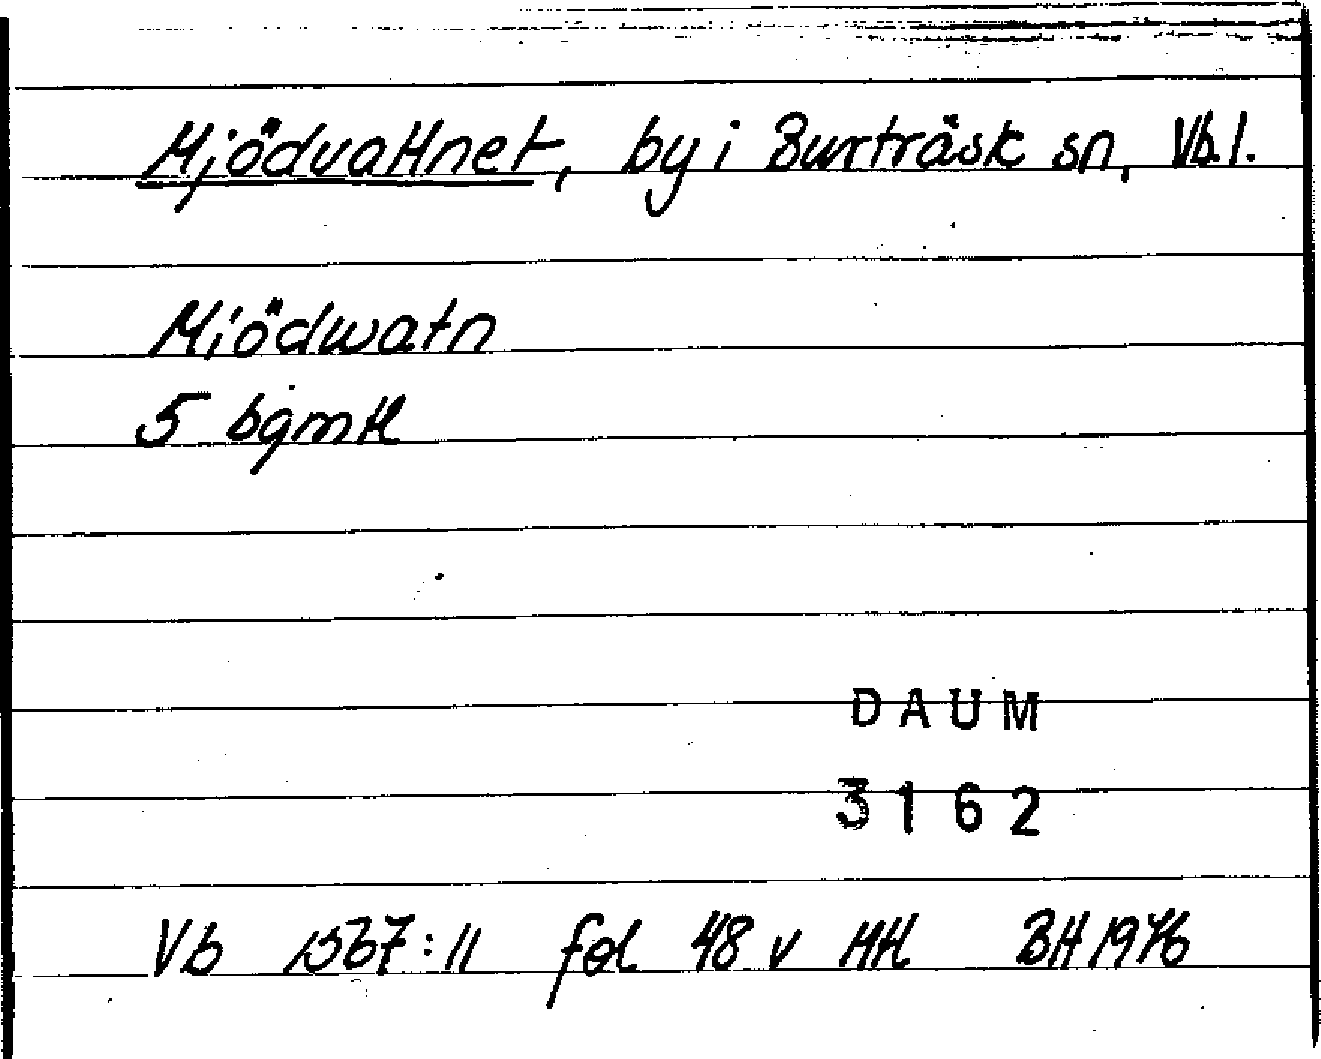 Mjödvattnet, by i Burträsk sn, Vb.l.
Miödwatn
5 bgmtl
DAUM
3162
Vb 1567:11 fol 48 v HH BH 1976